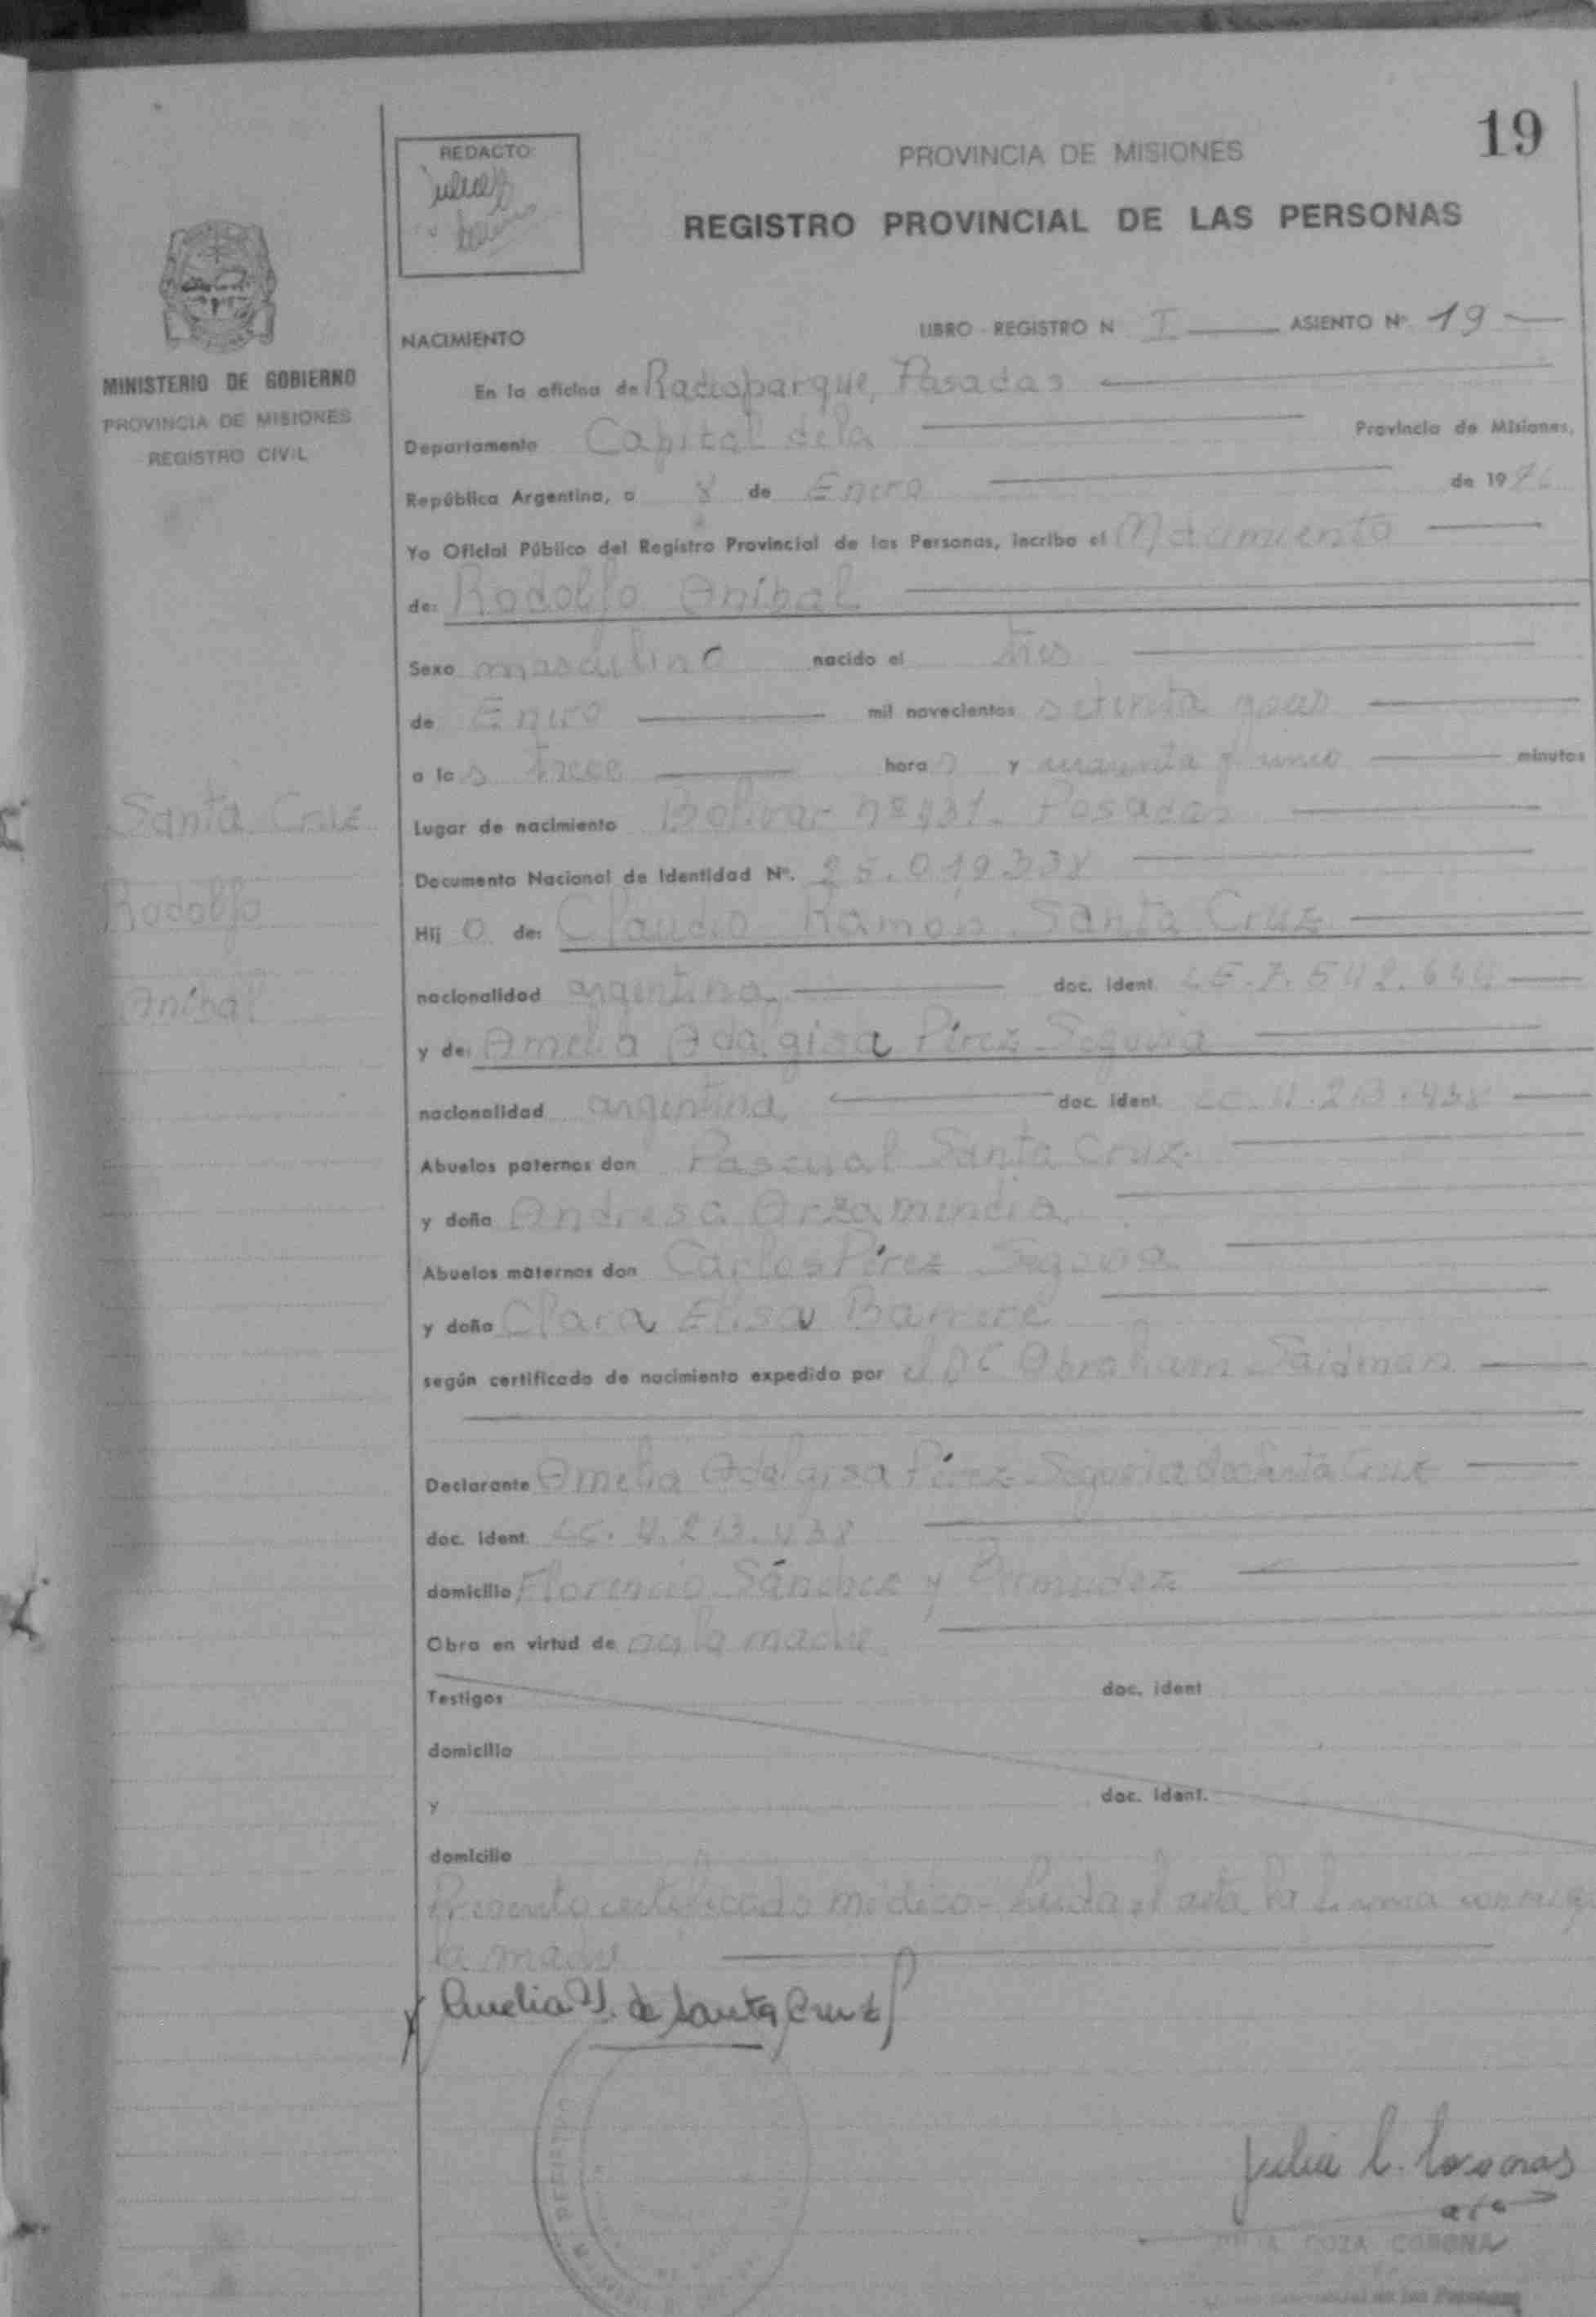 19
REDACTO:
PROVINCIA DE MISIONES
REGISTRO PROVINCIAL DE LAS PERSONAS
MINISTERIO DE GOBIERNO
PROVINCIA DE MISIONES
REGISTRO CIVIL
NACIMIENTO LIBRO - REGISTRO N I ASIENTO Nº 19
En la oficina de Radioparque, Posadas
Departamento Capital de la Provincia de Misiones,
República Argentina, a 8 de Enero de 1976
Yo Oficial Público del Registro Provincial de las Personas, inscribo el Nacimiento
de: Rodolfo Anibal
Sexo masculino nacido el tres
de Enero mil novecientos setenta y seis
a las trece horas y cuarenta y cinco minutos
Santa Cruz
Rodolfo
Anibal
Lugar de nacimiento Bolivar nº 431. Posadas
Documento Nacional de Identidad Nº. 25.019.338
Hijo de: Claudio Ramón Santa Cruz
nacionalidad argentina doc. ident. LE.7.542.644
y de: Amelia Adalgisa Pérez Segovia
nacionalidad argentina doc. ident. LC.4.213.438
Abuelos paternos don Pascual Santa Cruz
y doña Andresa Arzamendia
Abuelos maternos don Carlos Pérez Segovia
y doña Clara Elisa Barreré
según certificado de nacimiento expedido por el Dr Abraham Saidman
Declarante Amelia Adalgisa Pérez Segovia de Santa Cruz
doc. ident. LC. 4.213.438
domicilio Florencio Sánchez y Bermudez
Obra en virtud de la madre
Testigos doc. ident
domicilio
y doc. ident.
domicilio
Presento certificado médico - Leída el acta la firma conmigo
la madre
Amelia P. de Santa Cruz
Julia C. CORONA